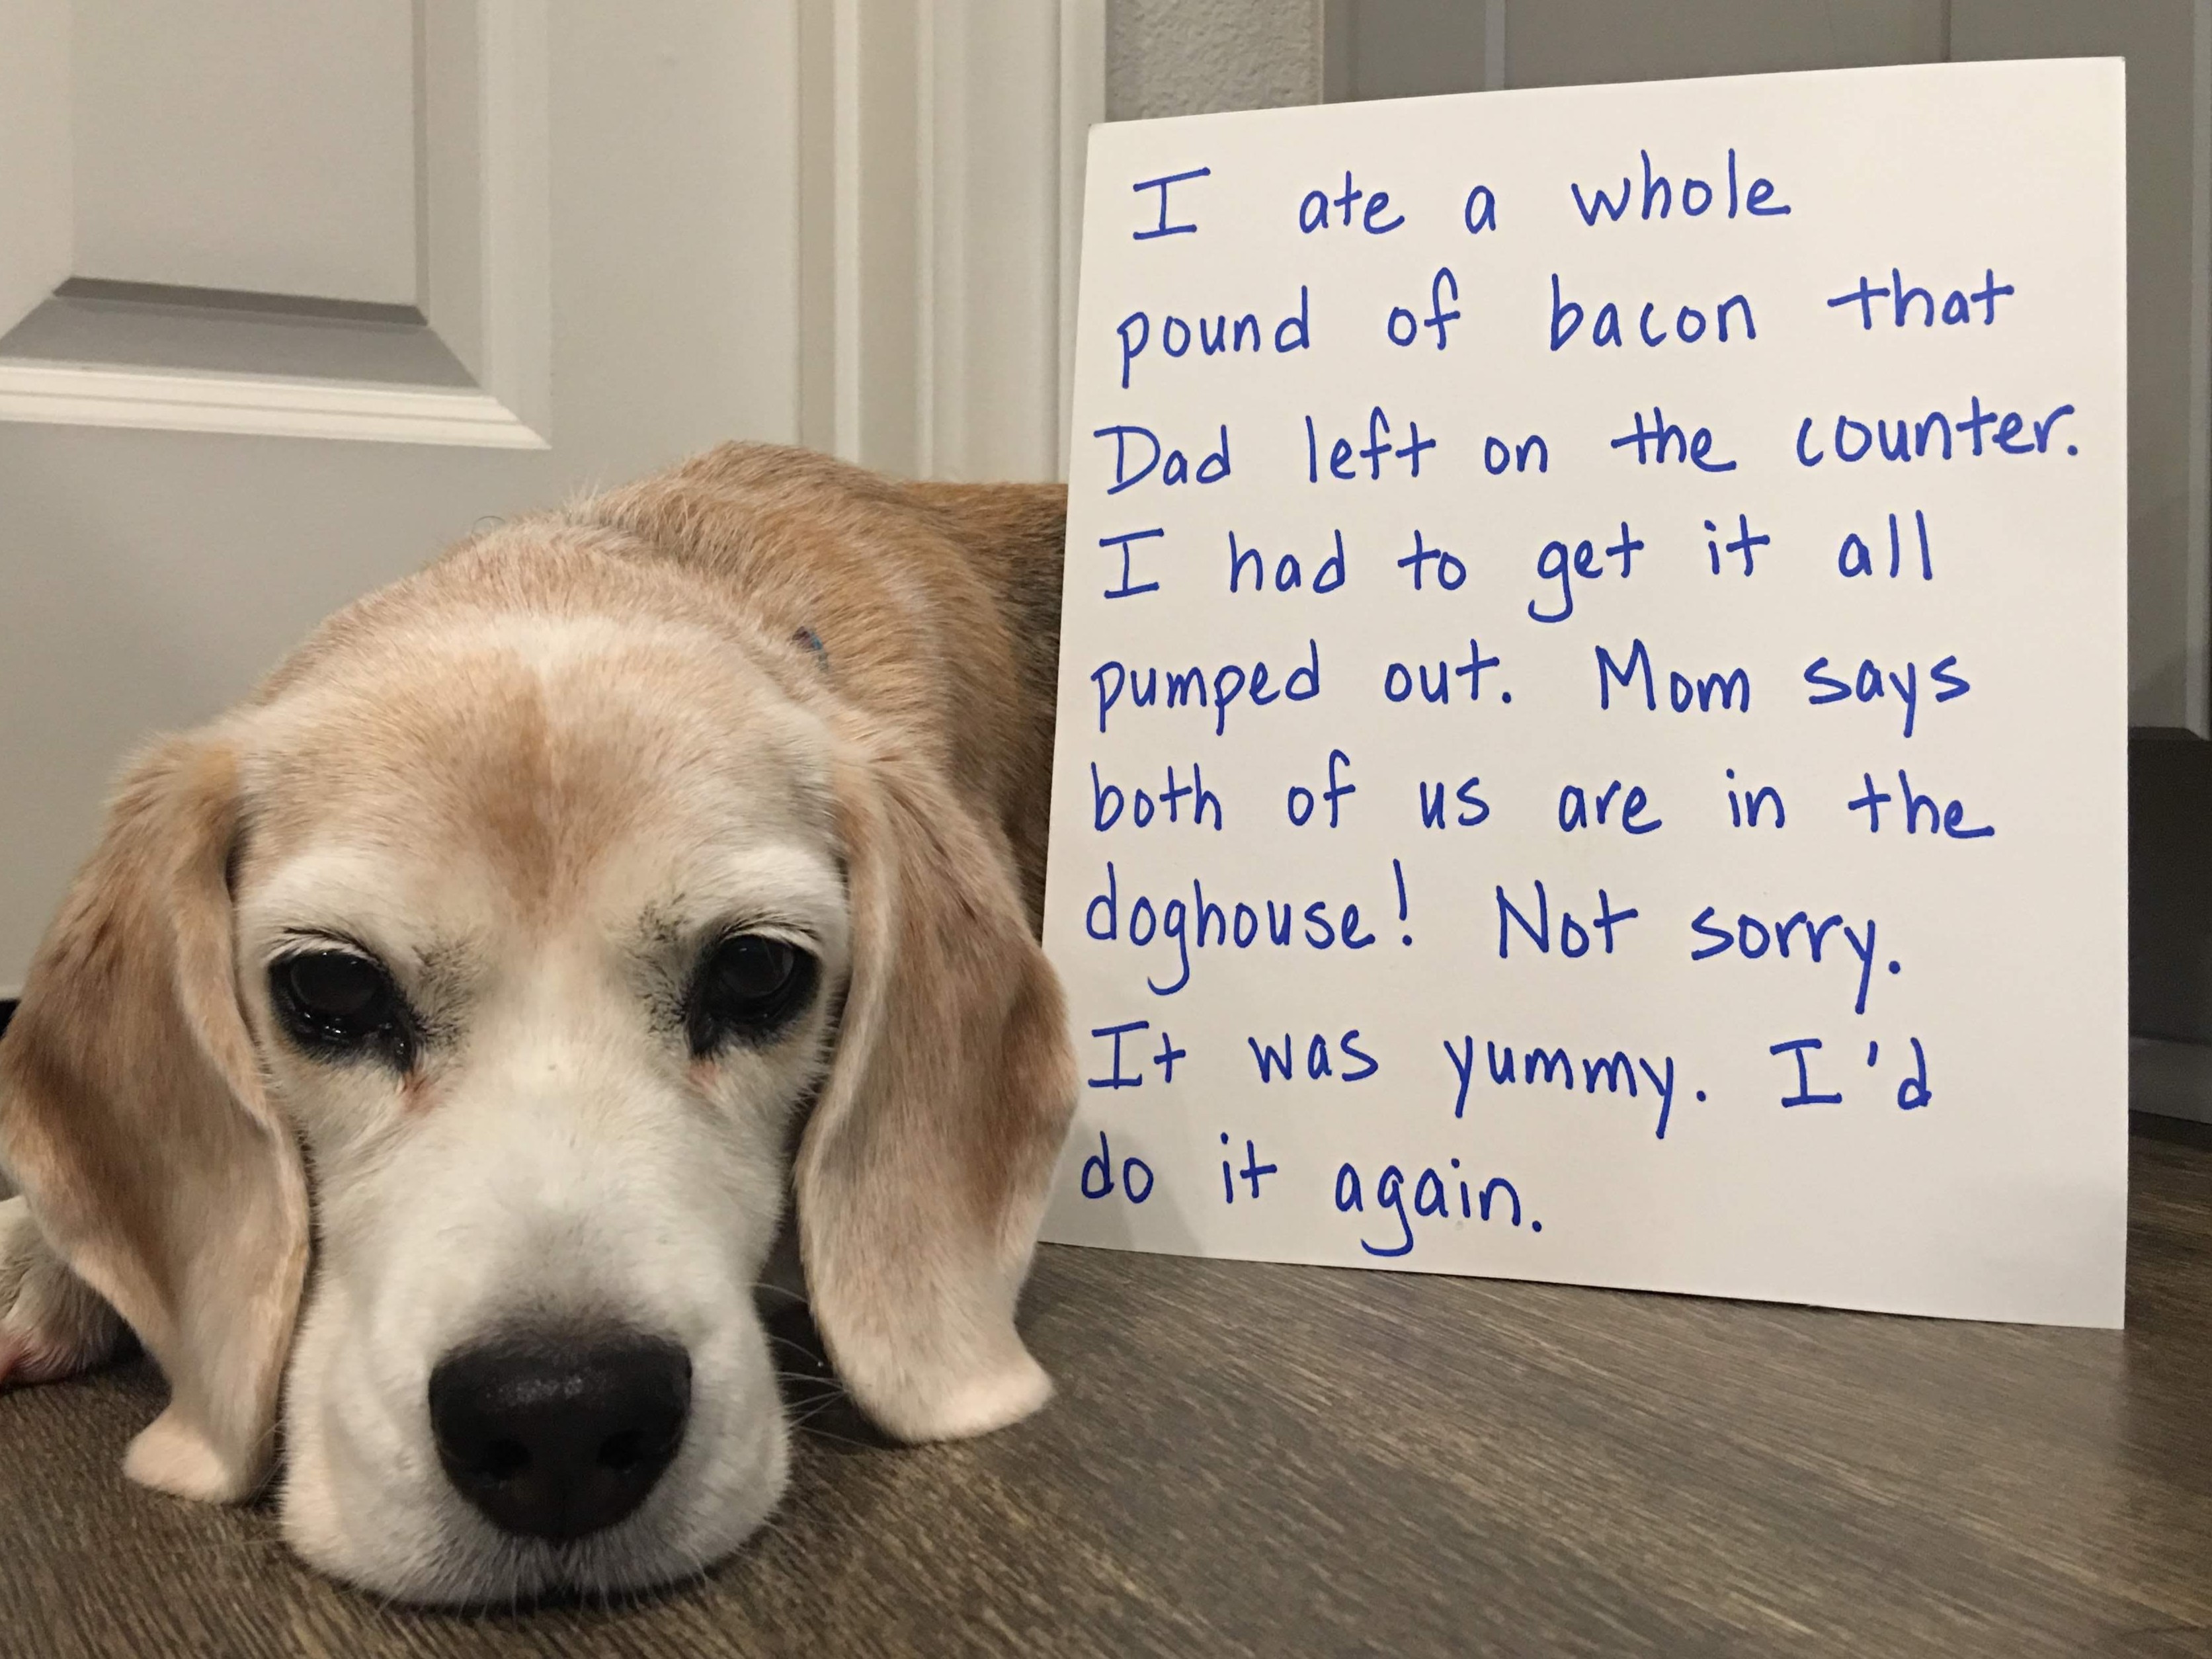 I ate a whole
pound of bacon that
Dad left on the counter.
I had to get it all
pumped out. Mom says
both of us are in the
doghouse! Not sorry.
It was yummy. I'd
do it again.